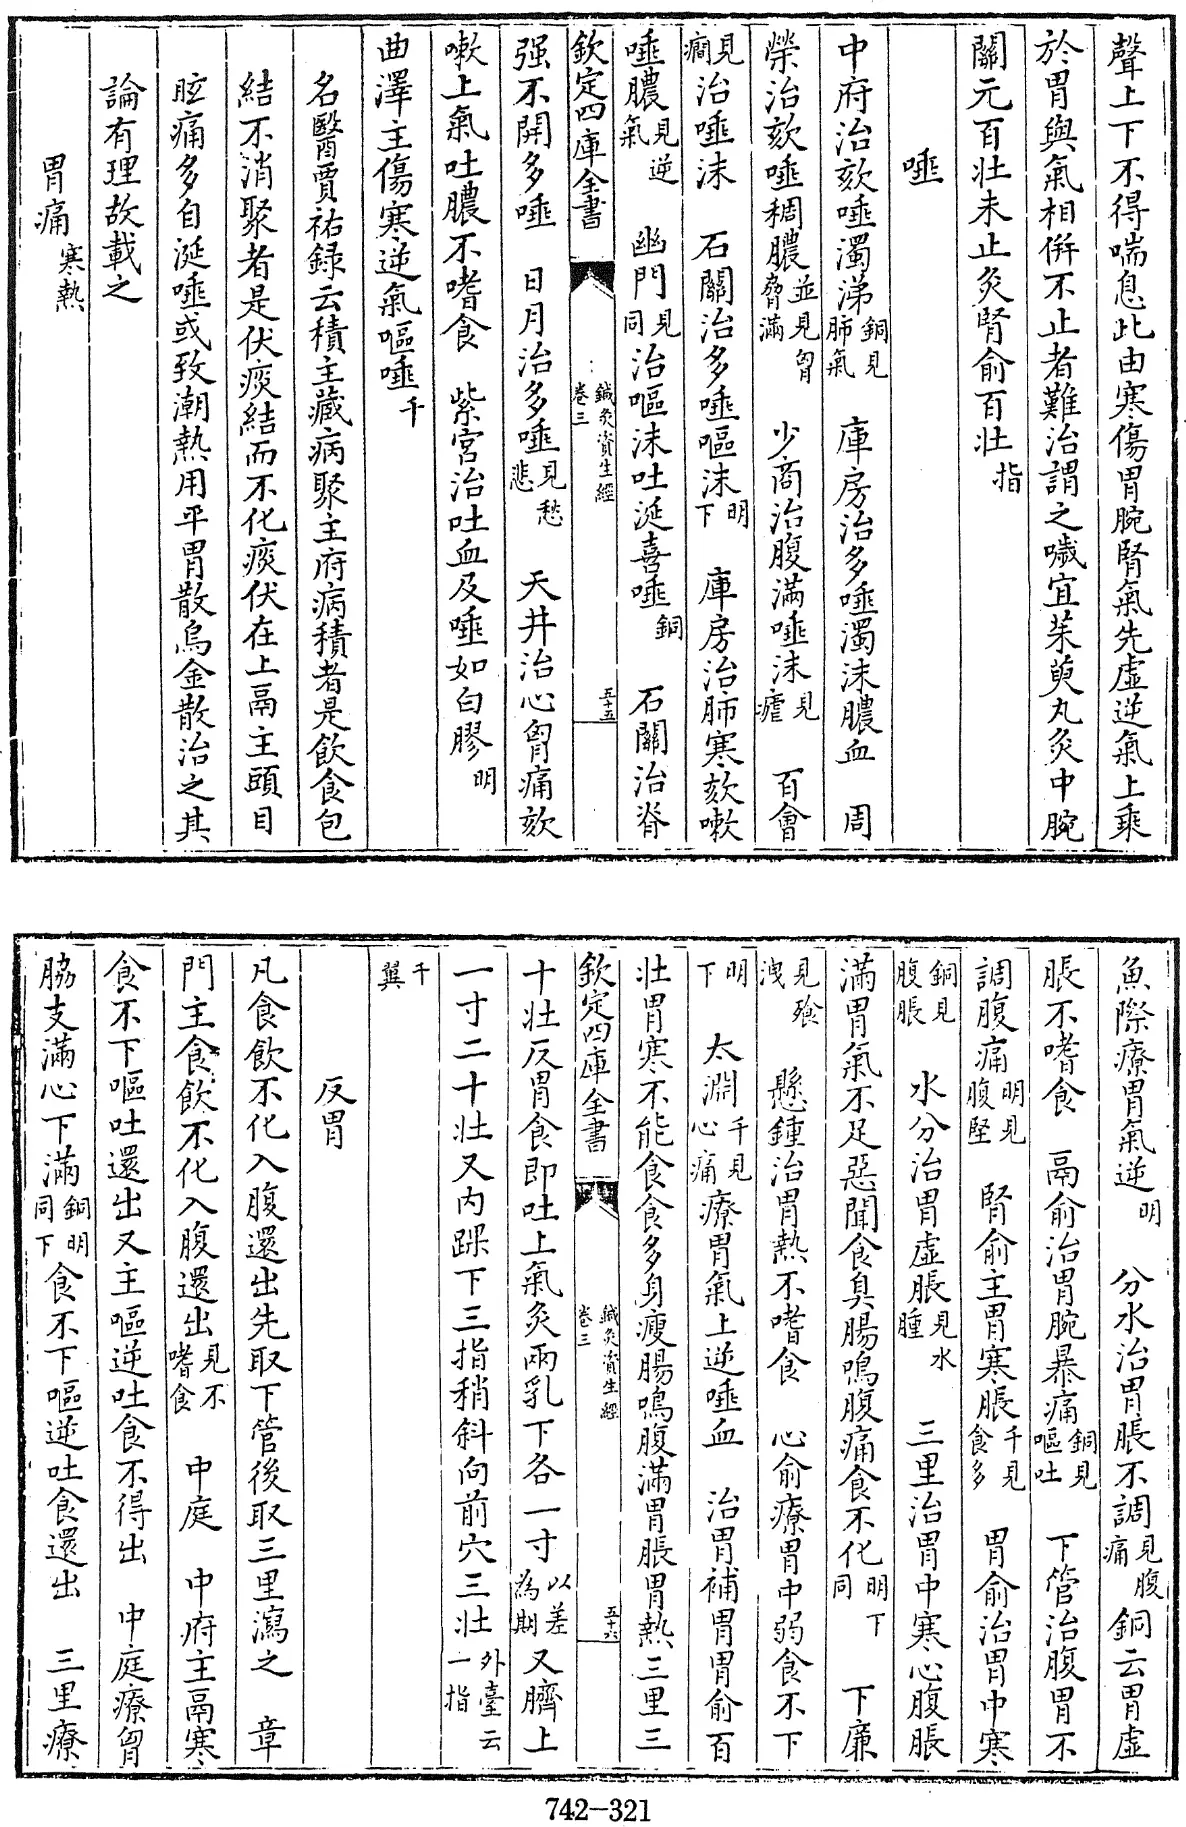 聲上下不得喘息此由寒傷胃脘腎氣先虛逆氣上乘
於胃與氣相併不止者難治謂之噦宜茱萸丸灸中脘
關元百壯未止灸腎俞百壯指
唾
中府治欬唾濁涕銅見肺氣 庫房治多唾濁沫膿血 周
榮治欬唾稠膿並見胷脅滿 少商治腹滿唾沫見瘧 百會
見癇治唾沫 石關治多唾嘔沫明下 庫房治肺寒欬嗽
唾膿見逆氣 幽門見同治嘔沫吐涎喜唾銅 石關治脊
欽定四庫全書 鍼灸資生經 卷三 五十五
强不開多唾 日月治多唾見愁悲 天井治心胷痛欬
嗽上氣吐膿不嗜食 紫宮治吐血及唾如白膠明
曲澤主傷寒逆氣嘔唾千
名醫賈祐録云積主藏病聚主府病積者是飲食包
結不消聚者是伏痰結而不化痰伏在上鬲主頭目
眩痛多自涎唾或致潮熱用平胃散烏金散治之其
論有理故載之
胃痛寒熱
魚際療胃氣逆明 分水治胃脹不調見腹痛銅云胃虛
脹不嗜食 鬲俞治胃脘暴痛銅見嘔吐 下管治腹胃不
調腹痛明見腹堅 腎俞主胃寒脹千見食多 胃俞治胃中寒
銅見腹脹 水分治胃虛脹見水腫 三里治胃中寒心腹脹
滿胃氣不足惡聞食臭腸鳴腹痛食不化明下同 下廉
見飱洩 懸鍾治胃熱不嗜食 心俞療胃中弱食不下
明下 太淵千見心痛療胃氣上逆唾血 治胃補胃胃俞百
壯胃寒不能食食多身瘦腸鳴腹滿胃脹胃熱三里三
欽定四庫全書 鍼灸資生經 卷三 五十六
十壯反胃食即吐上氣灸兩乳下各一寸以差為期又臍上
一寸二十壯又内踝下三指稍斜向前穴三壯外臺云一指
千翼
反胃
凡食飲不化入腹還出先取下管後取三里瀉之 章
門主食飲不化入腹還出見不嗜食 中庭 中府主鬲寒
食不下嘔吐還出又主嘔逆吐食不得出 中庭療胷
脇支滿心下滿銅明下同食不下嘔逆吐食還出 三里療
742-321